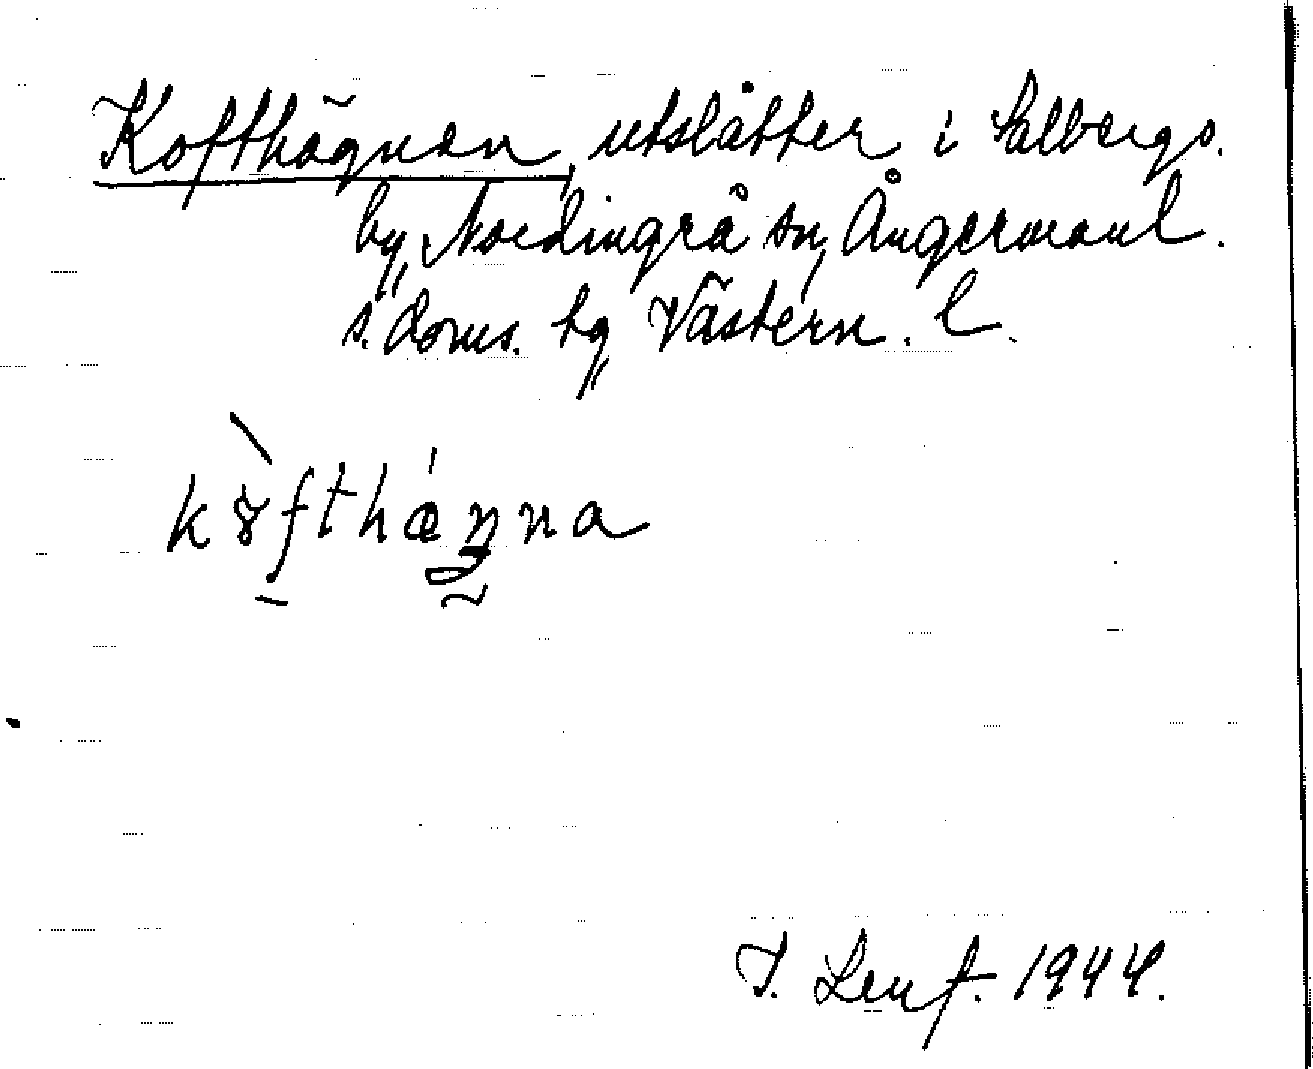 Kofthägnan, utslåtter i Salbergs.
by, Nordingrå sn, Ångermanl.
s. doms. hg Västern. l.
kȣ̀fthæŋna
I. Lenf. 1944.